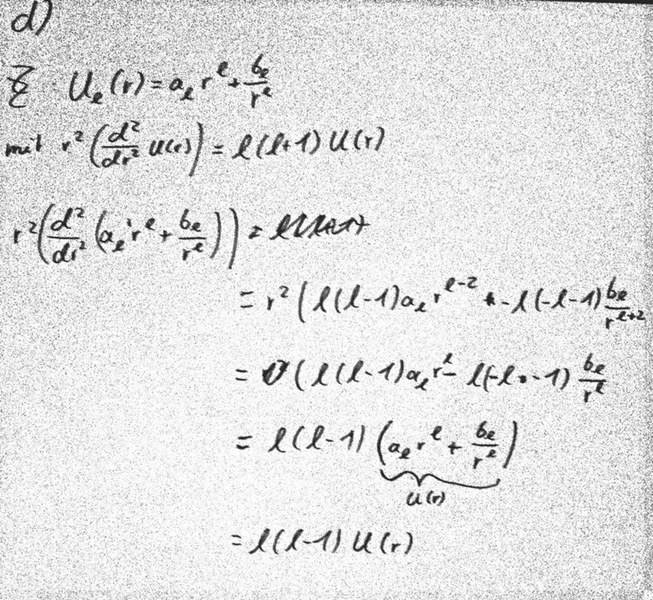 d)
Z: U_l(r) = a_l r^l + b_l/r^l
mit r²(d²/dr² U(r)) = l(l+1) U(r)
r²(d²/dr² (a_l r^l + b_l/r^l)) =
= r²(l(l-1)a_l r^{l-2} + -l(-l-1) b_l/r^{l+2}
= (l(l-1)a_l r^l - l(-l-1) b_l/r^l
= l(l-1) (a_l r^l + b_l/r^l)
U(r)
= l(l-1) U(r)